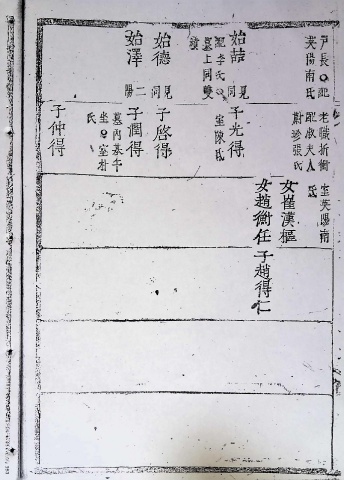 戶長○配
英陽南氏
始喆
見同
配李氏○
墓上同雙
墳
始德
見同
始澤
二陽
老職折衝
配淑夫人
蔚珍張氏
室英陽南
氏
子光得
室陳氏
子啓得
子潤得
墓內基午
坐○室朴
氏
子仲得
女崔漢樞
女趙衡任 子趙得仁